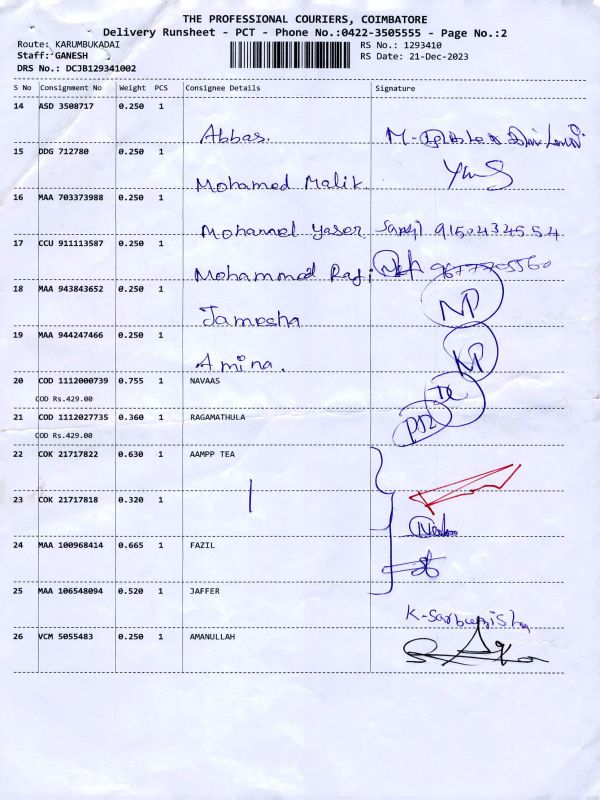 THE PROFESSIONAL COURIERS, COIMBATORE
Delivery Runsheet - PCT - Phone No.:0422-3505555 - Page No.:2
Route: KARUMBUKADAI RS No.: 1293410
Staff: GANESH RS Date: 21-Dec-2023
DRS No.: DCJB129341002
S No Consignment No Weight PCS Consignee Details Signature
14 ASD 3508717 0.250 1
Abbas.
15 DDG 712780 0.250 1
Mohamed Malik
16 MAA 703373988 0.250 1
Mohammed Yaser 9150434554
17 CCU 911113587 0.250 1
Mohammed Rafi
18 MAA 943843652 0.250 1
Jamesha NP
19 MAA 944247466 0.250 1
Amina. NP
20 COD 1112000739 0.755 1 NAVAAS
COD Rs.429.00
21 COD 1112027735 0.360 1 RAGAMATHULA
COD Rs.429.00
22 COK 21717822 0.630 1 AAMPP TEA
23 COK 21717818 0.320 1
24 MAA 100968414 0.665 1 FAZIL
25 MAA 106548094 0.520 1 JAFFER
26 VCM 5055483 0.250 1 AMANULLAH